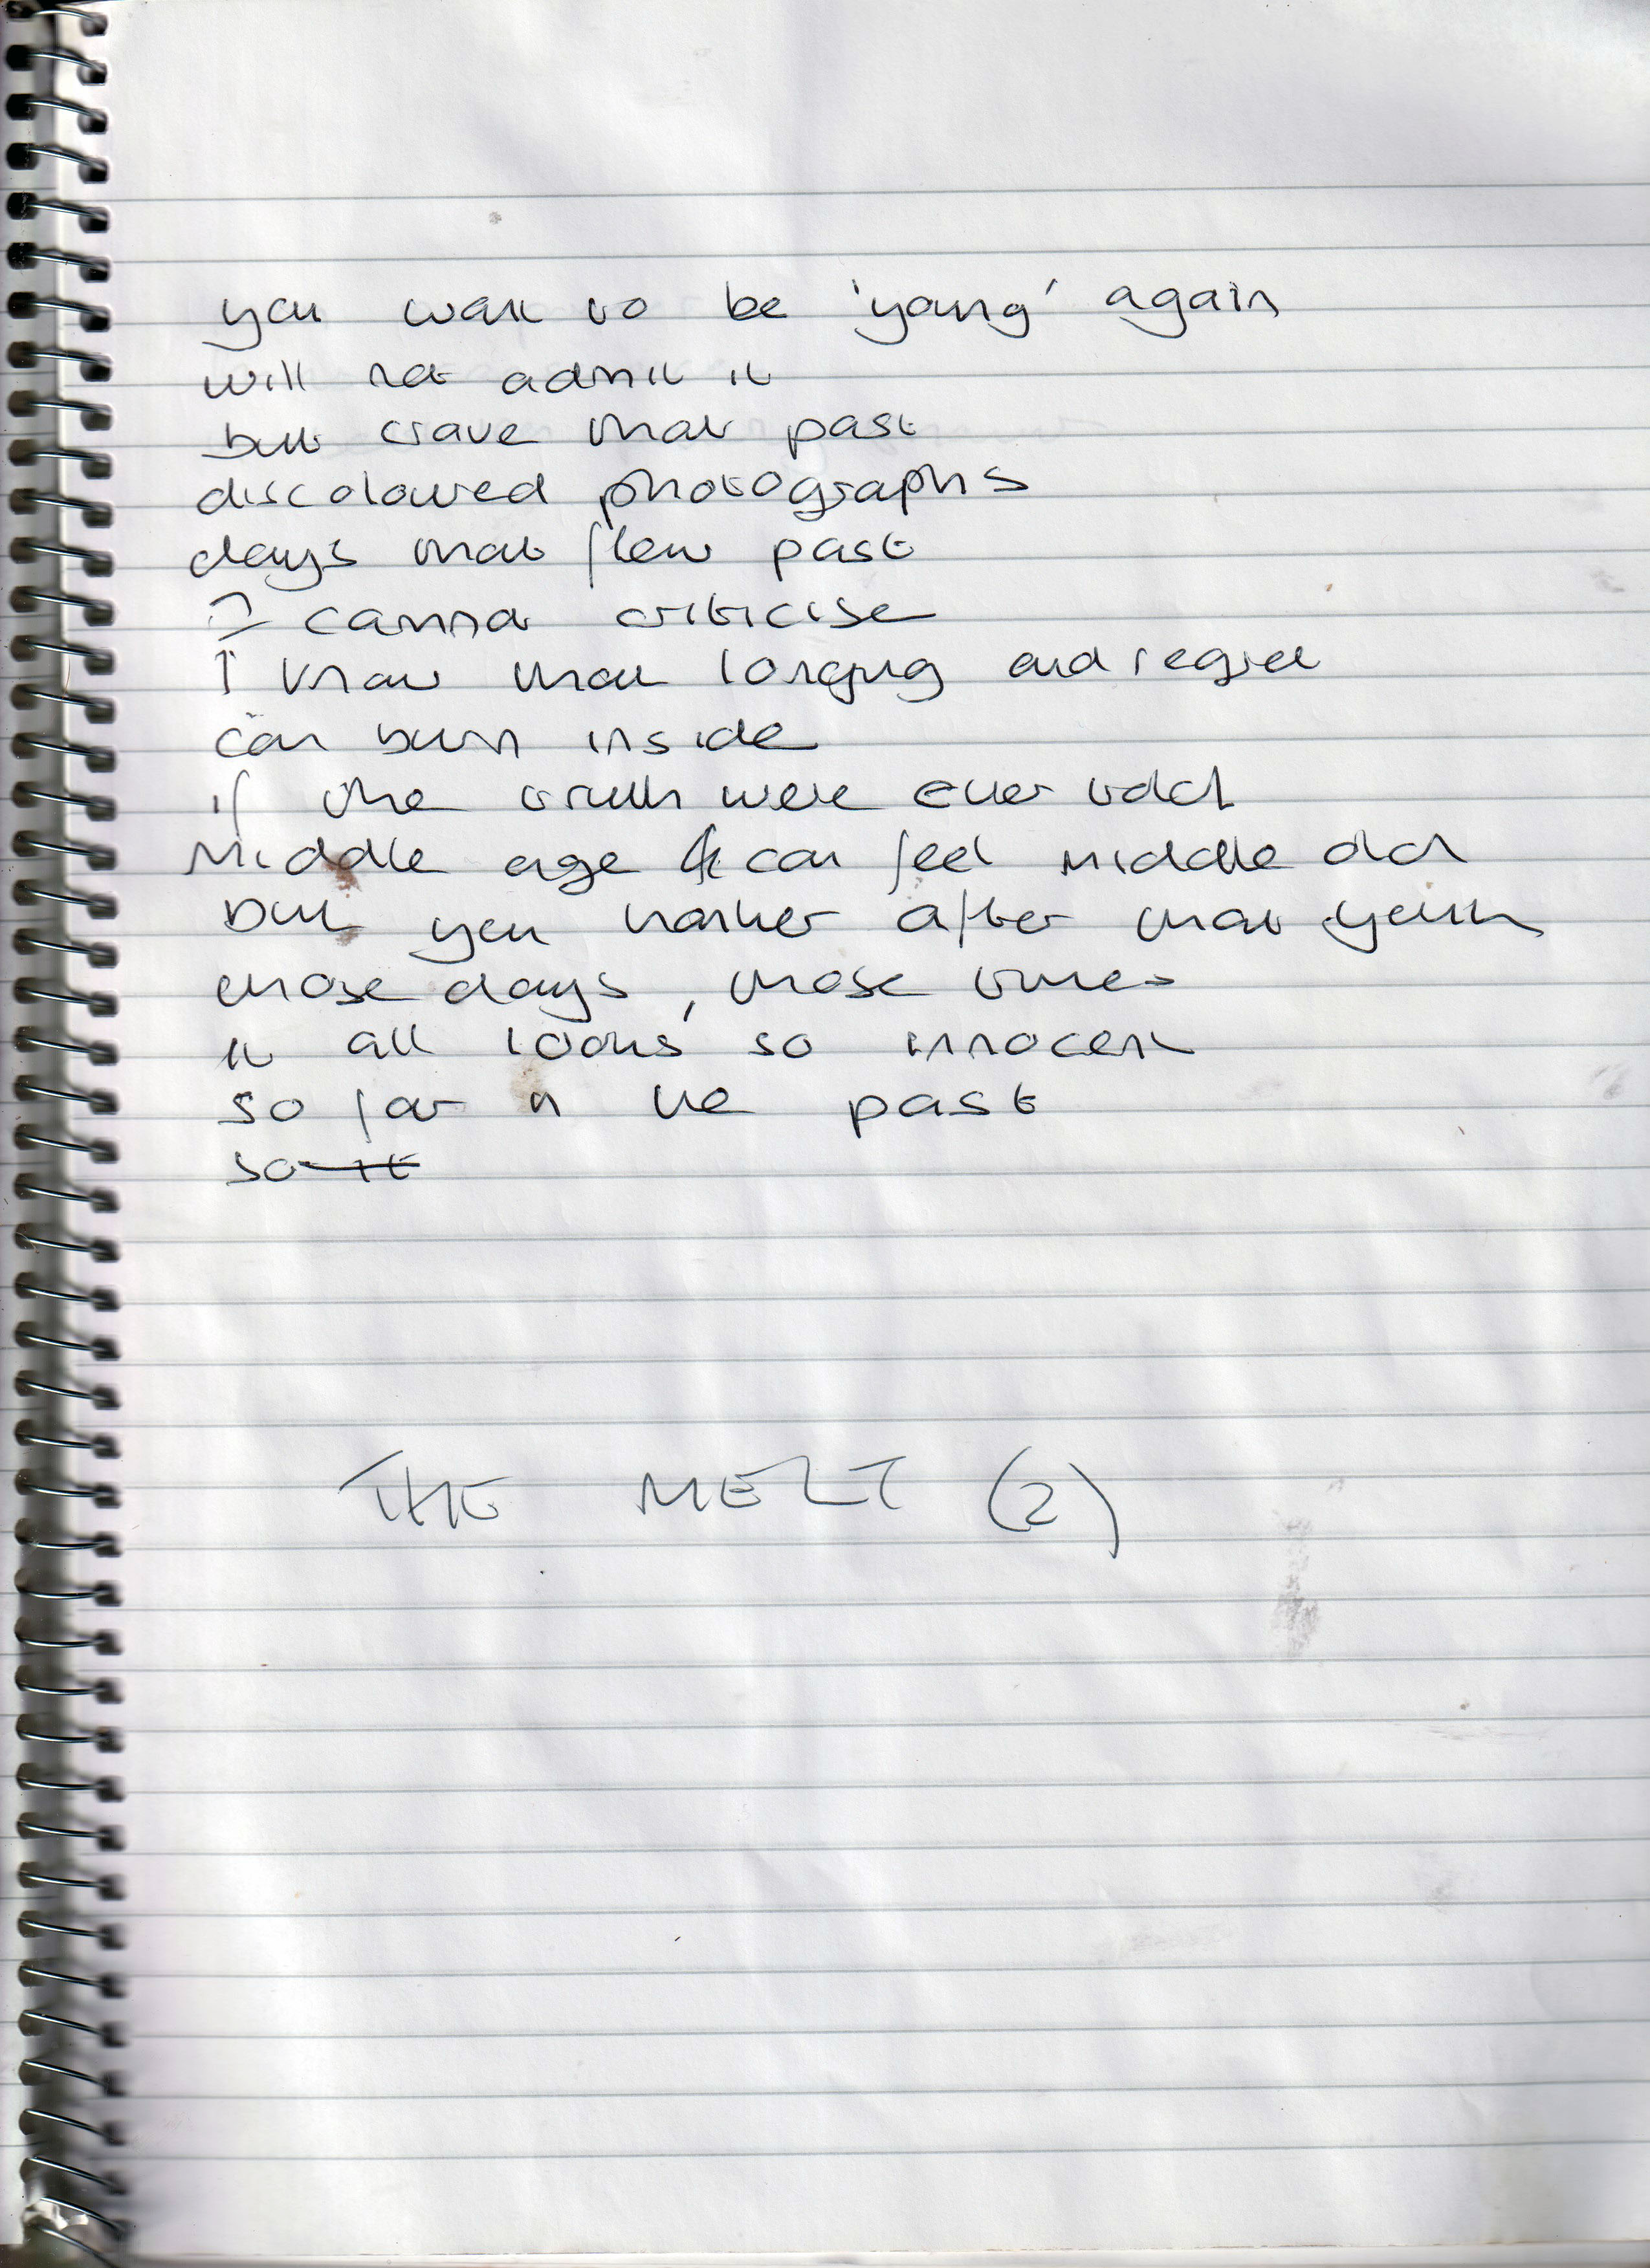 you want to be 'young' again
will not admit it
but crave that past
discoloured photographs
days that flew past
I cannot criticise
I know that longing and regret
can burn inside
if the truth were ever told
Middle age can feel middle old
but you hanker after that youth
those days, those times
it all looks so innocent
so far in the past
so it
THE MELT (2)